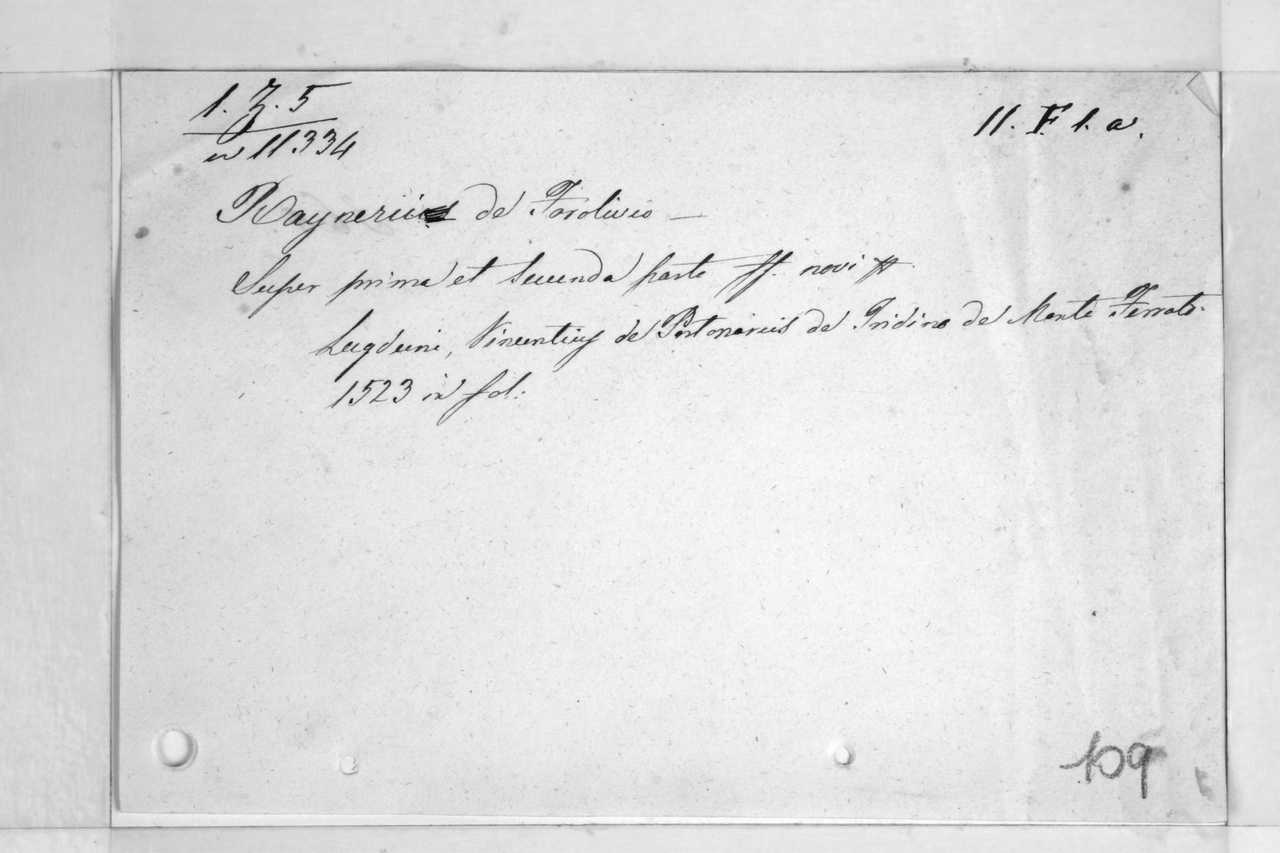 1. Z. 5
11334
11. F. 1. a.
Raynerius de Forolivio —
Super prima et secunda parte ff. novi
Lugduni, Vincentius de Portonariis de Tridino de Monte Ferrato.
1523 in fol.
109